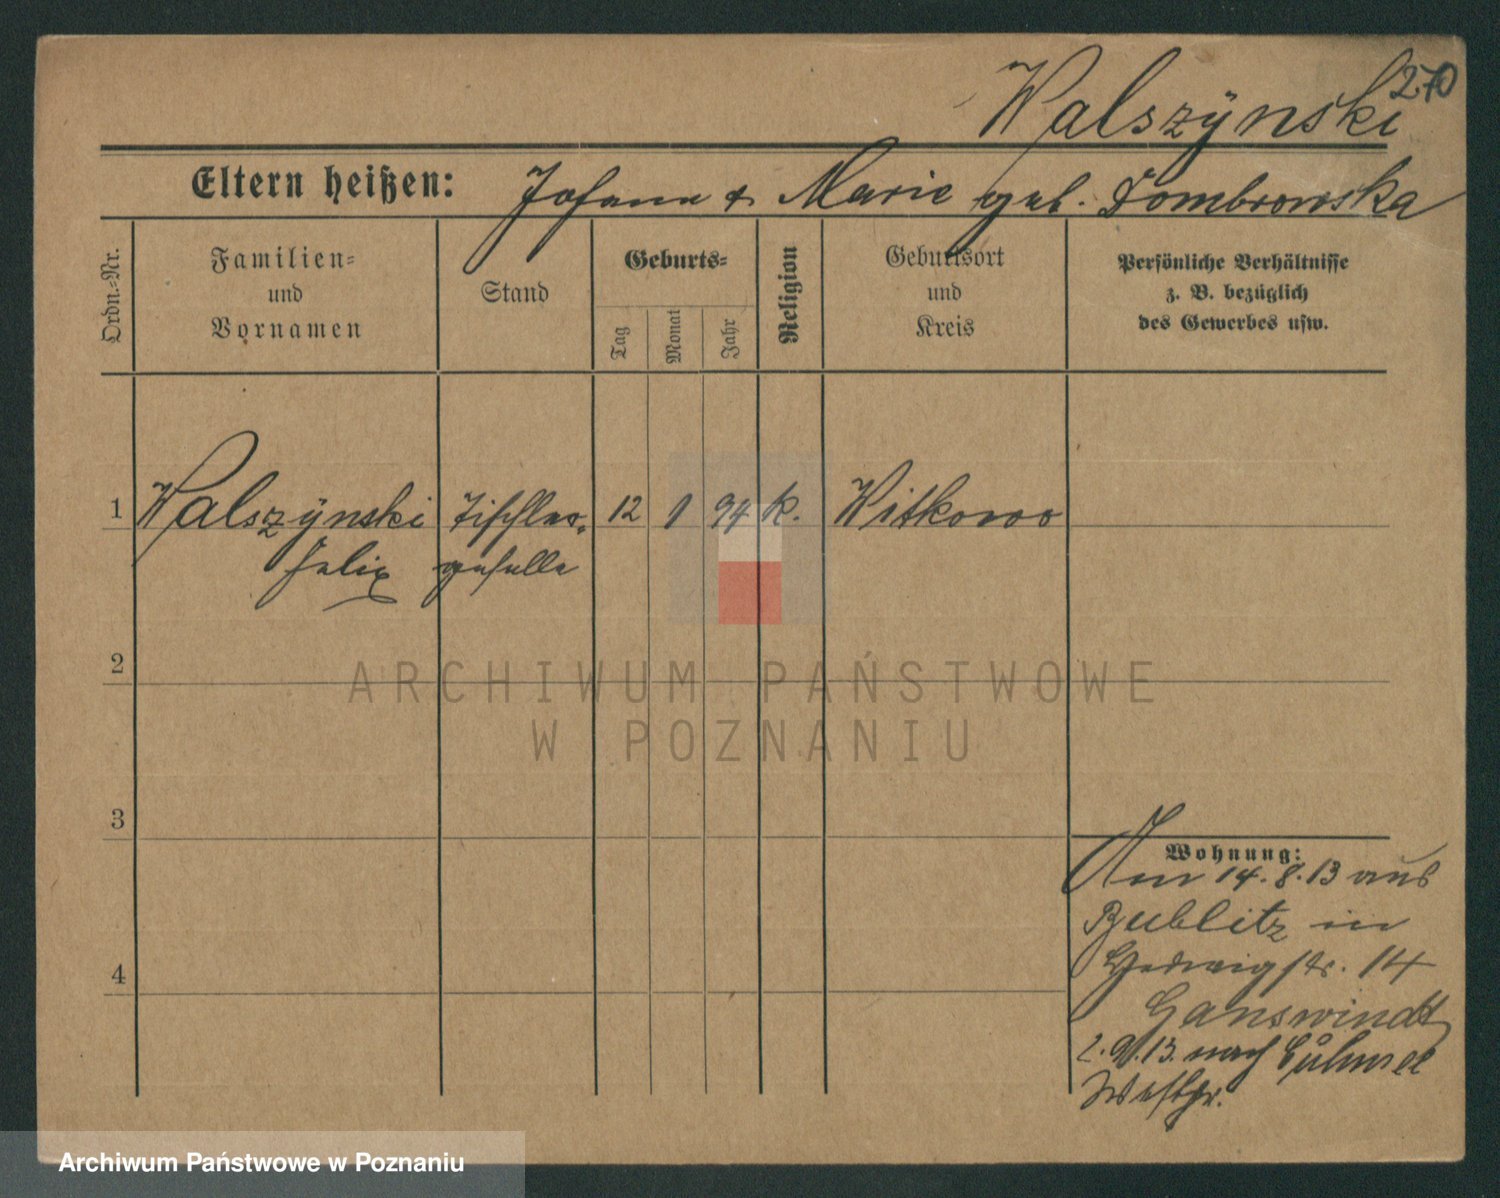 270
Walszÿnski
Eltern heißen: Johann & Marie geb. Dombrowska
Ordn.-Nr.
Familien-
und
Vornamen
Stand
Geburts-
Tag
Monat
Jahr
Religion
Geburtsort
und
Kreis
Persönliche Verhältnisse
z. B. bezüglich
des Gewerbes usw.
1 Walszÿnski Tischler- 12 1 94 k. Witkowo
Felix geselle
2
ARCHIWUM PAŃSTWOWE
W POZNANIU
3
Wohnung:
Am 14.8.13 aus
Bublitz in
Hedwigstr. 14
4
Ganswindt
2.9.13. nach
Westpr.
Archiwum Państwowe w Poznaniu